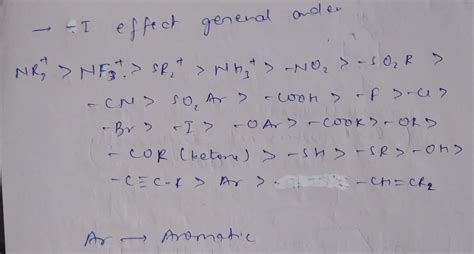 → -I effect general order
NR₃⁺ > NF₃⁺ > SR₂⁺ > NH₃⁺ > -NO₂ > -SO₂R >
-CN > SO₂Ar > -COOH > -F > -Cl >
-Br > -I > -OAr > -COOR > -OR >
-COR (ketone) > -SH > -SR > -OH >
-C≡C-R > Ar > -CH=CR₂
Ar → Aromatic